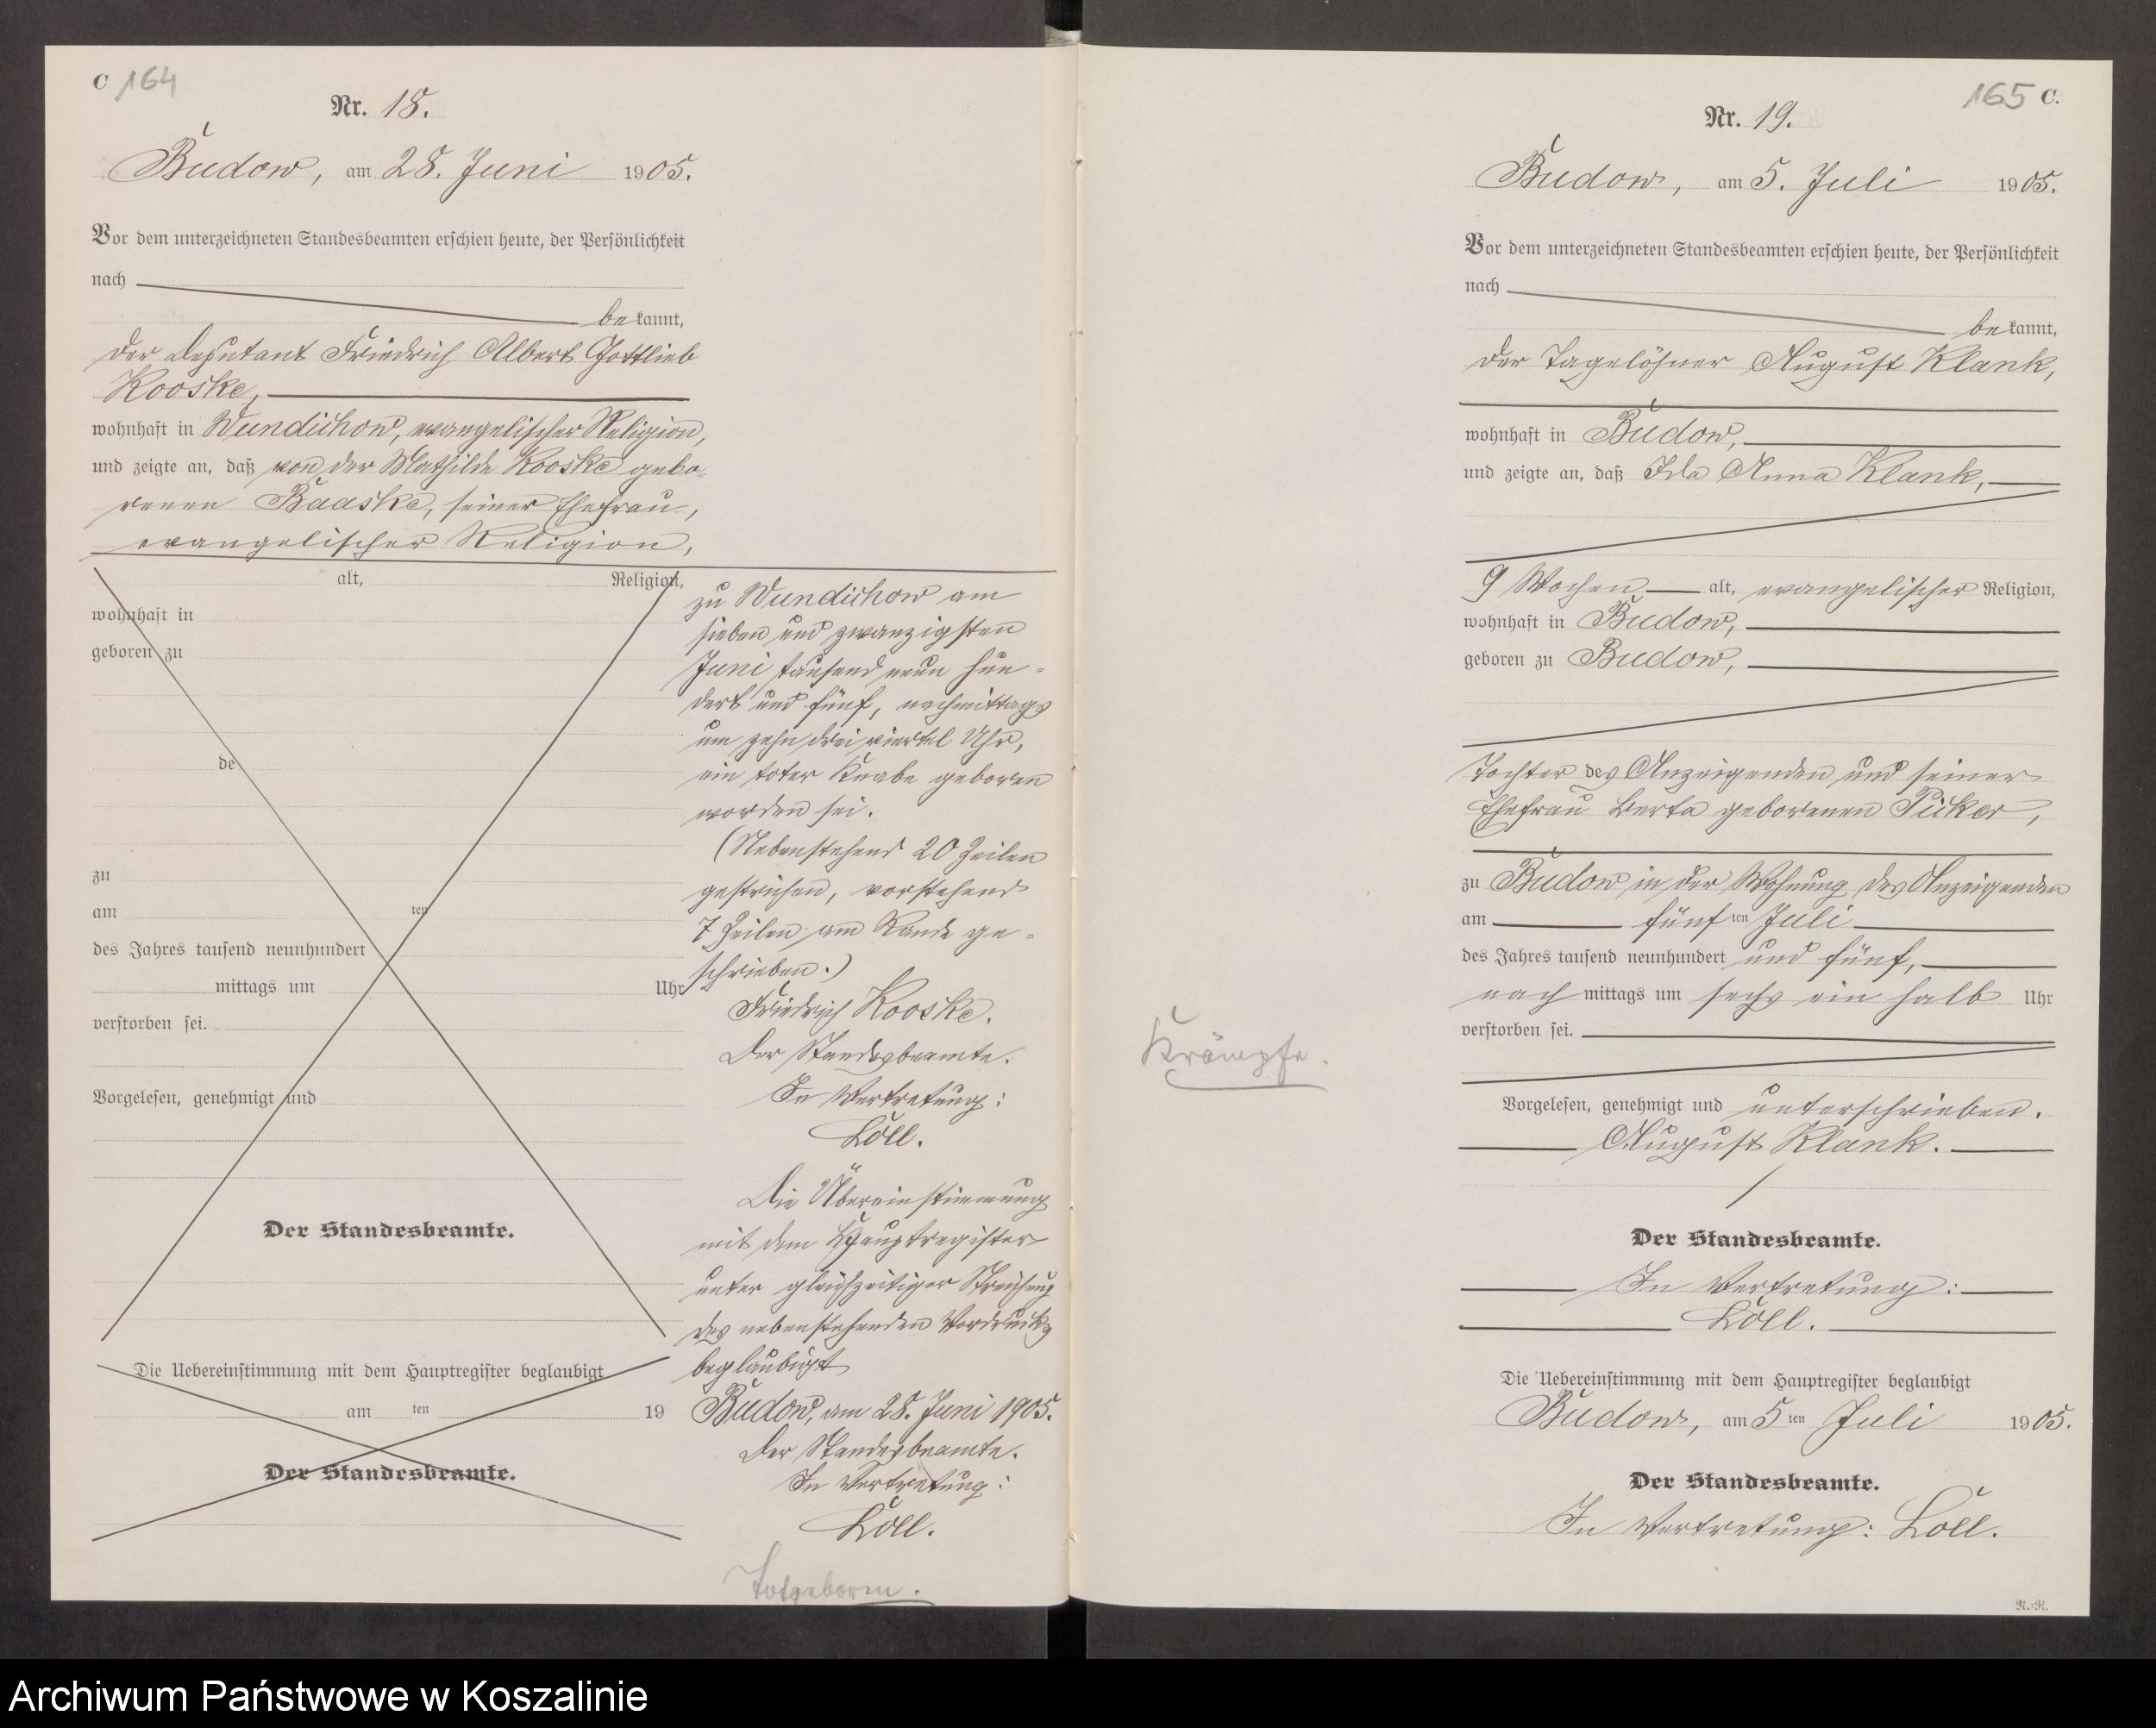 C 164
Nr. 18.
Budow, am 28. Juni 1905.
Vor dem unterzeichneten Standesbeamten erschien heute, der Persönlichkeit
nach
bekannt,
der Deputant Friedrich Albert Gottlieb
Kooske,
wohnhaft in Wundichow, evangelischer Religion,
und zeigte an, daß von der Mathilde Kooske gebo-
renen Baaske, seiner Ehefrau,
evangelischer Religion,
alt, Religion,
wohnhaft in
geboren zu
de
zu
am ten
des Jahres tausend neunhundert
mittags um Uhr
verstorben sei.
Vorgelesen, genehmigt und
Der Standesbeamte.
Die Uebereinstimmung mit dem Hauptregister beglaubigt
am ten 19
Der Standesbeamte.
zu Wundichow am
sieben und zwanzigsten
Juni tausend neun hun-
dert und fünf, nachmittags
um zehn drei viertel Uhr,
ein toter Knabe geboren
worden sei.
(Nebenstehend 20 Zeilen
gestrichen, vorstehend
7 Zeilen am Rande ge-
schrieben.)
Friedrich Kooske.
Der Standesbeamte.
In Vertretung:
Löll.
Die Übereinstimmung
mit dem Hauptregister
unter gleichzeitiger Streichung
des nebenstehenden Vordrucks
beglaubigt
Budow, am 28. Juni 1905.
Der Standesbeamte.
In Vertretung:
Löll.
Totgeboren.
165 C.
Nr. 19.
Budow, am 5. Juli 1905.
Vor dem unterzeichneten Standesbeamten erschien heute, der Persönlichkeit
nach
bekannt,
der Tagelöhner August Klank,
wohnhaft in Budow,
und zeigte an, daß Ida Anna Klank,
9 Wochen alt, evangelischer Religion,
wohnhaft in Budow,
geboren zu Budow,
Tochter des Anzeigenden und seiner
Ehefrau Berta geborenen Püker,
zu Budow in der Wohnung des Anzeigenden
am fünften Juli
des Jahres tausend neunhundert und fünf,
nach mittags um sechs ein halb Uhr
verstorben sei.
Krämpfe.
Vorgelesen, genehmigt und unterschrieben.
August Klank.
Der Standesbeamte.
In Vertretung:
Löll.
Die Uebereinstimmung mit dem Hauptregister beglaubigt
Budow, am 5ten Juli 1905.
Der Standesbeamte.
In Vertretung: Löll.
N.-N.
Archiwum Państwowe w Koszalinie